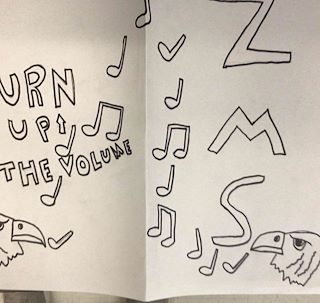 URN
UP
THE VOLUME
Z
M
S